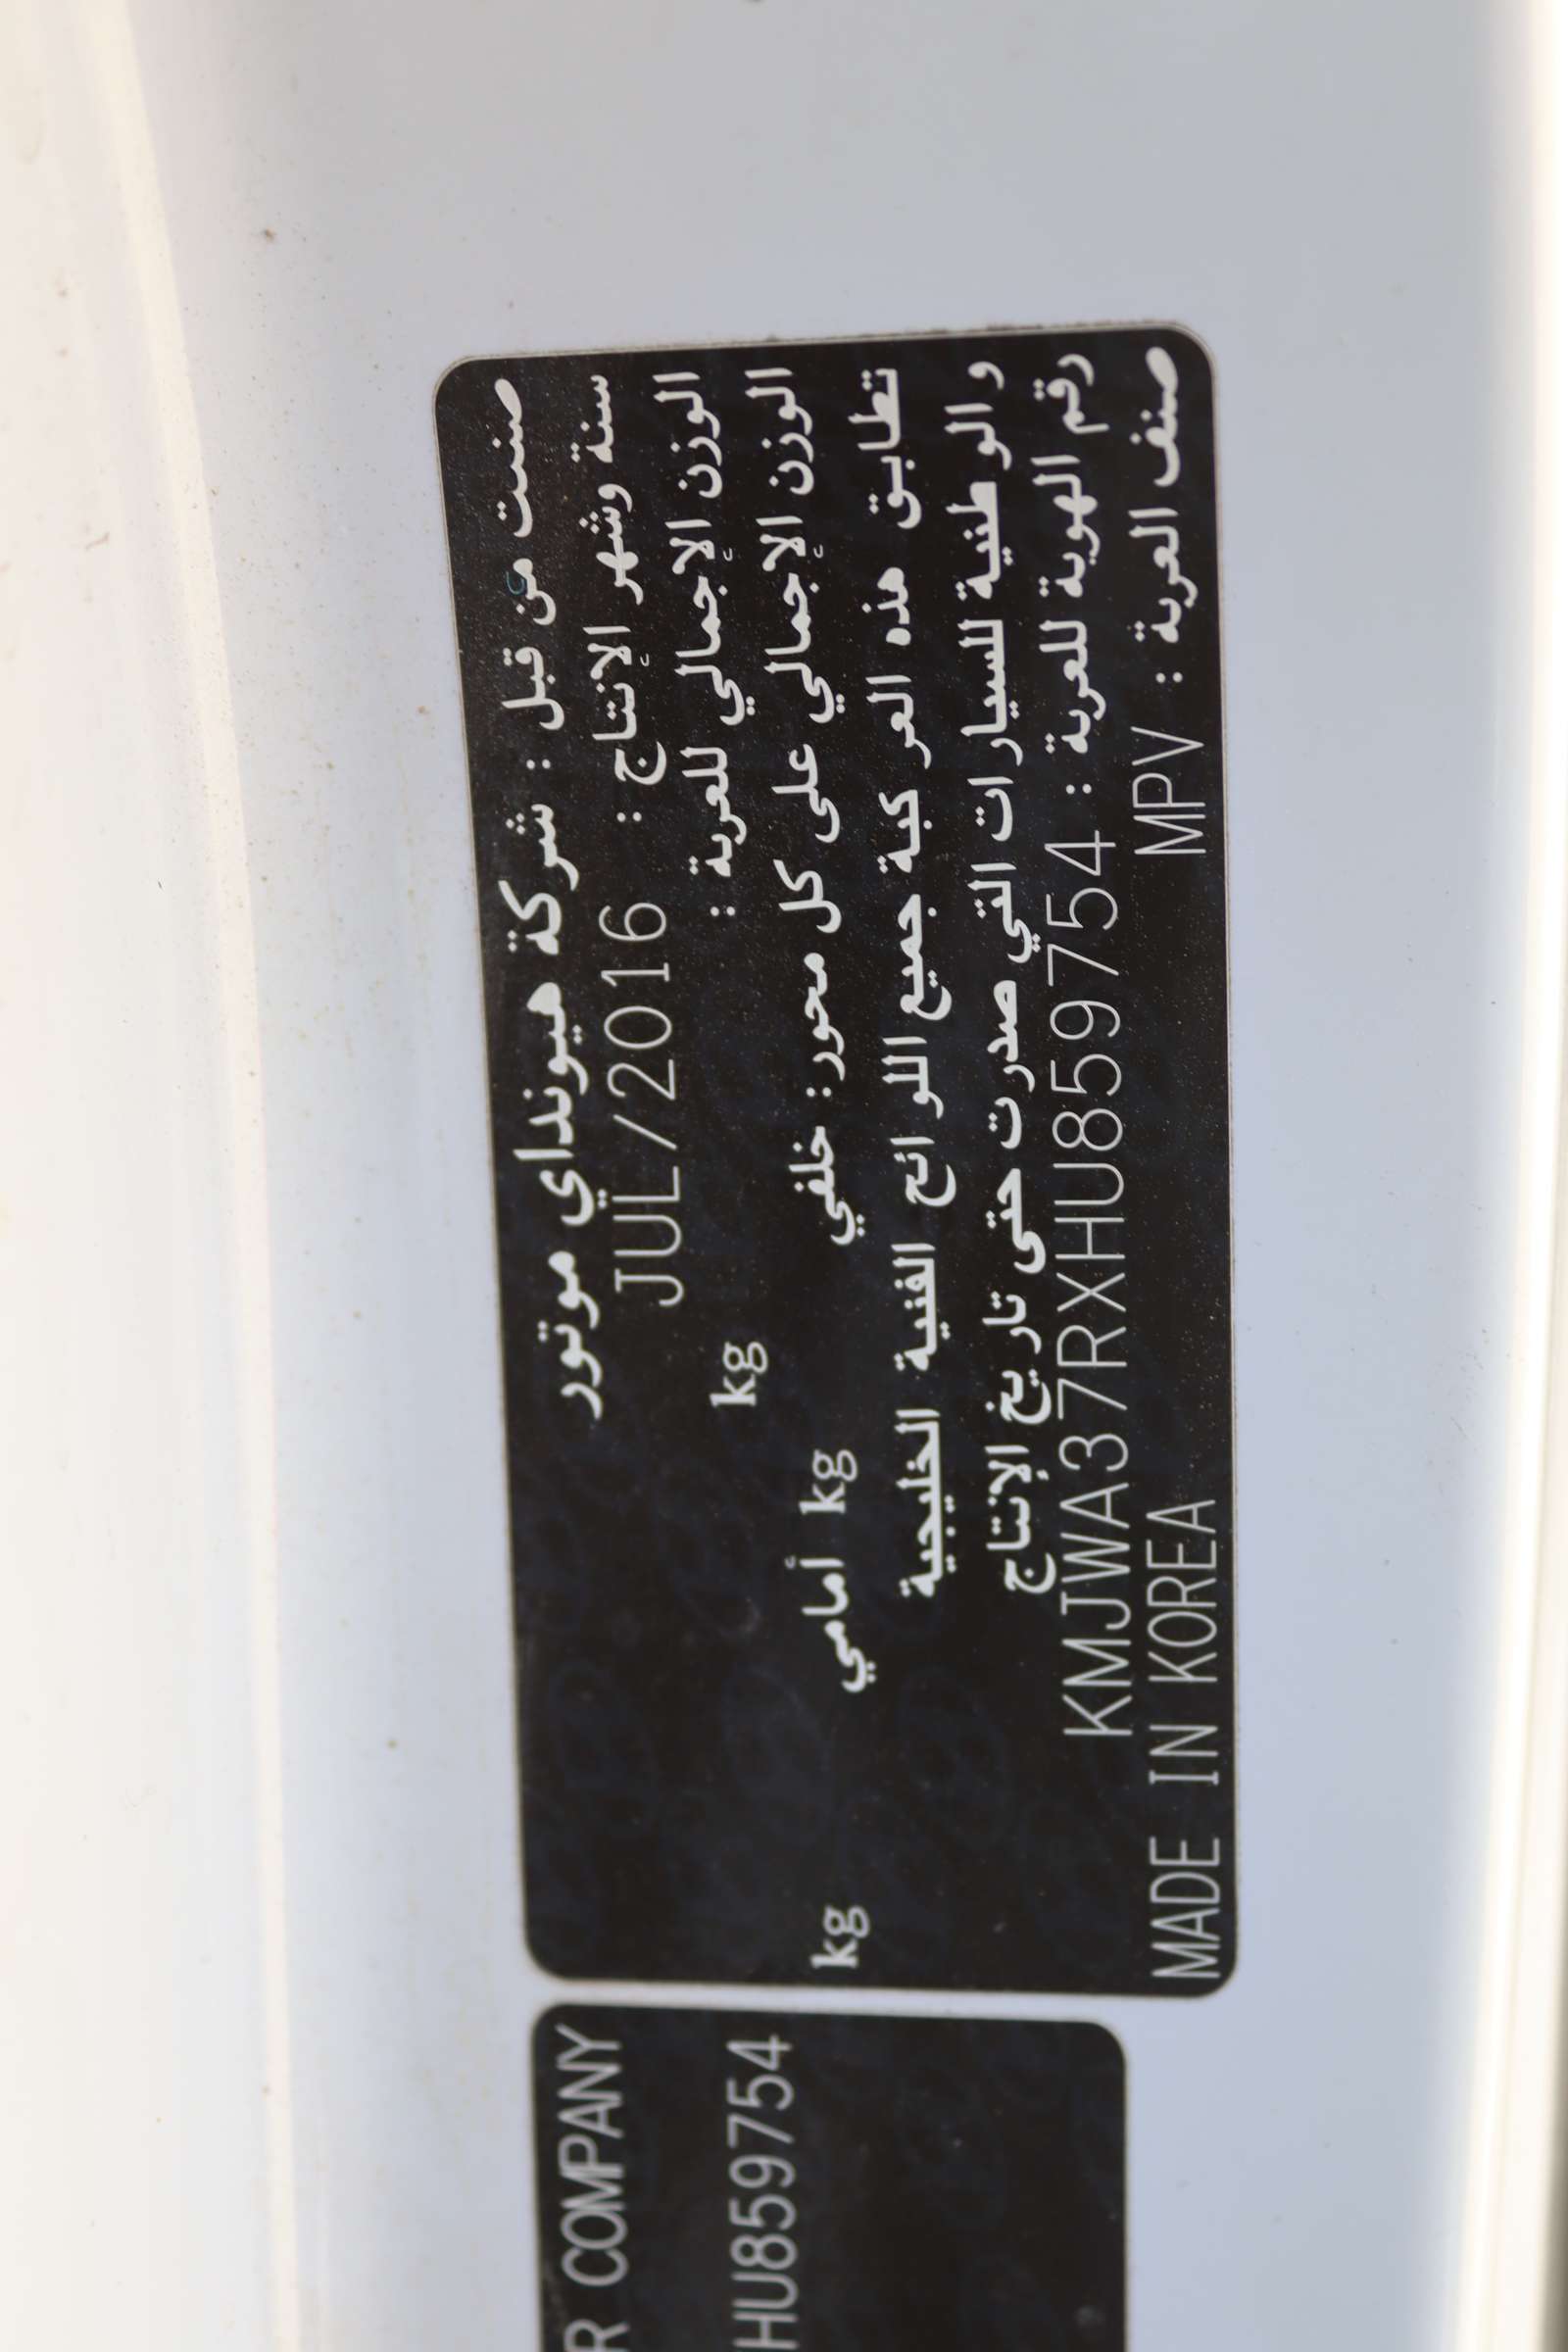 صنت من قبل : شركة هيونداي موتور
سنة وشهر الإنتاج : JUL/2016
الوزن الإجمالي للعربة : kg
الوزن الإجمالي على كل محور: خلفي kg أمامي kg
تطابق هذه العركبة جميع اللوائح الفنية الخليجية
و الوطنية للسيارات التي صدرت حتى تاريخ الإنتاج
رقم الهوية للعربة : KMJWA37RXHU859754
صنف العربة : MPV MADE IN KOREA
R COMPANY
HU859754